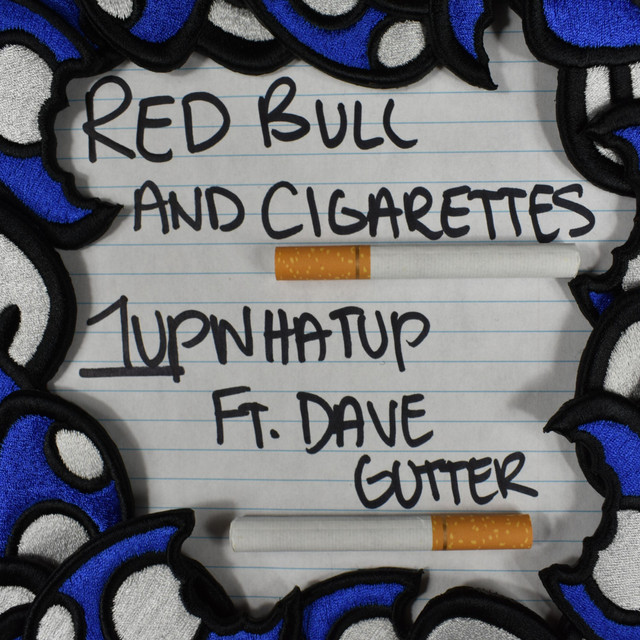 RED BULL
AND CIGARETTES
1UPWHATUP
FT. DAVE
GUTTER